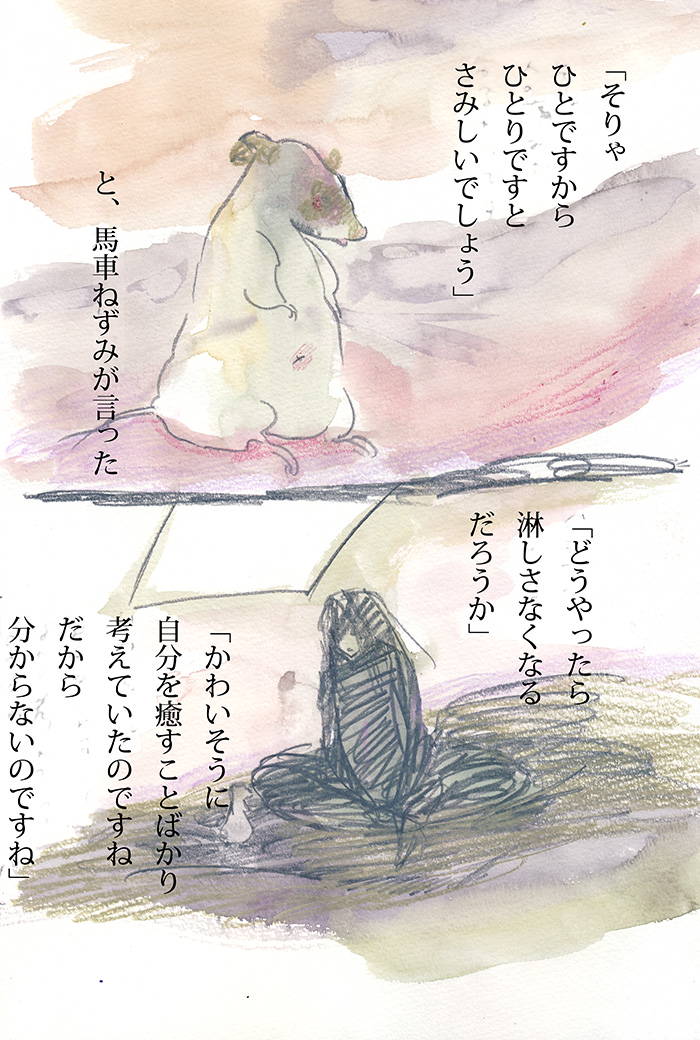 「そりゃ
ひとですから
ひとりですと
さみしいでしょう」
と、馬車ねずみが言った
「どうやったら
淋しさなくなる
だろうか」
「かわいそうに
自分を癒すことばかり
考えていたのですね
だから
分からないのですね」